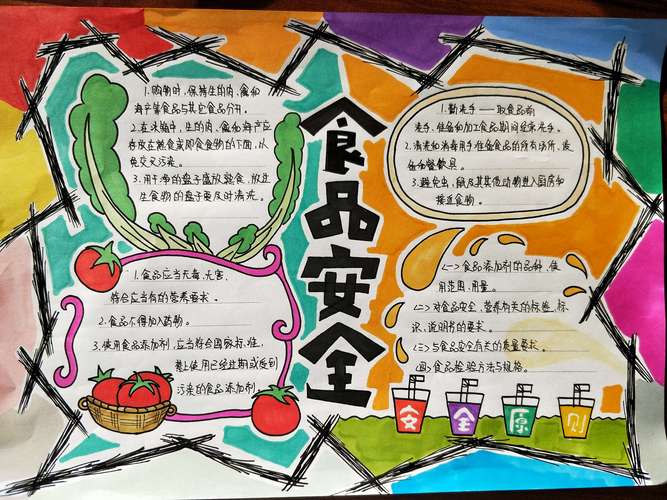 食品安全
1.购物时,保持生的肉、禽和
海产等食品与其它食品分开。
2.在冰箱中,生的肉、禽和海产应
存放在熟食或即食食物的下面,以
免交叉污染。
3.用干净的盘子盛放熟食,放过
生食物的盘子要及时清洗。
1.勤洗手——取食品前
洗手,准备和加工食品期间经常洗手。
2.清洗和消毒用于准备食品的所有场所、设
备和餐饮具。
3.避免虫、鼠及其其他动物进入厨房和
接近食物。
1.食品应当无毒、无害,
符合应当有的营养要求。
2.食品不得加入药物。
3.使用食品添加剂,应当符合国家标准,
禁止使用已经过期或受到
污染的食品添加剂。
(一)食品添加剂的品种、使
用范围、用量。
(二)对食品安全、营养有关的标签、标
识、说明书的要求。
(三)与食品安全有关的质量要求。
(四)食品检验方法与规格。
安全原则